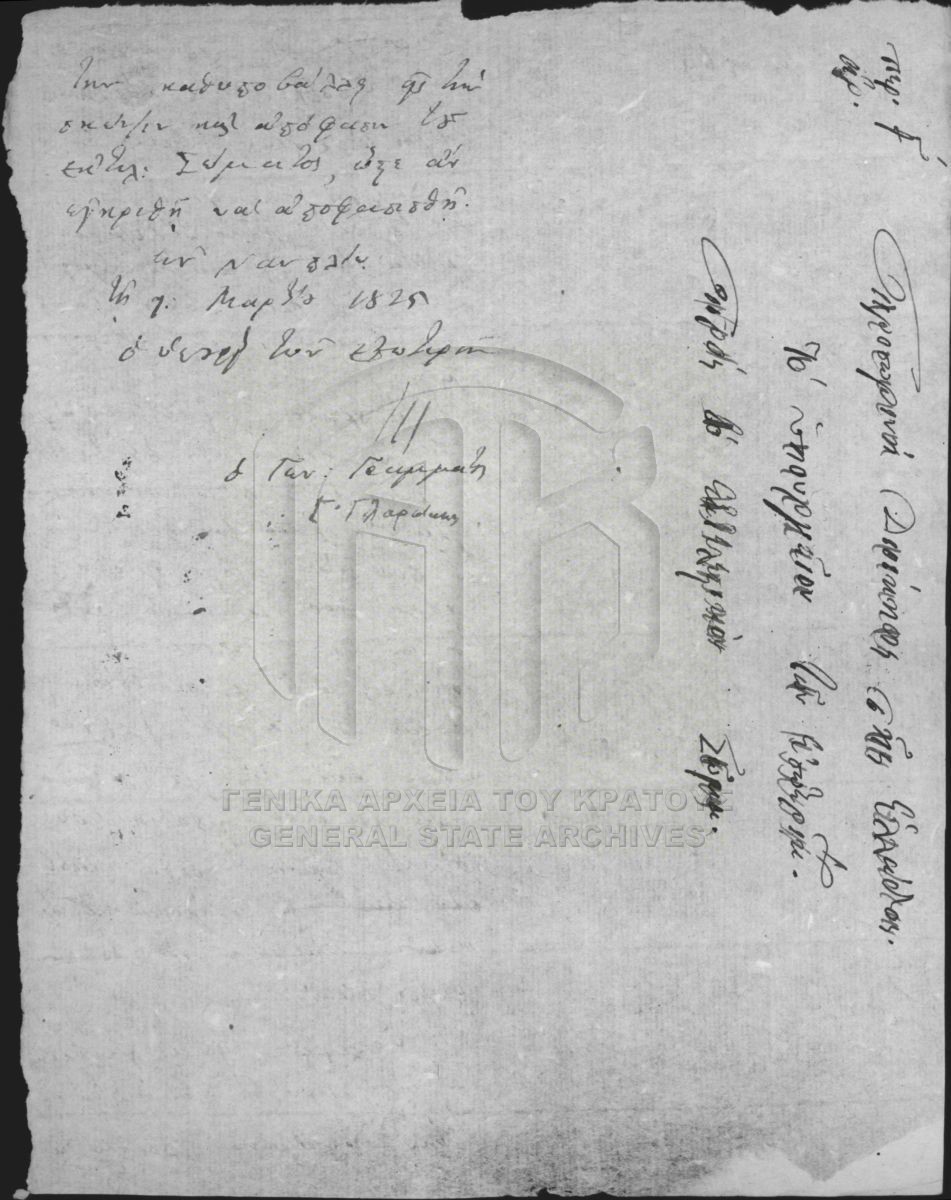 τὴν καθυποβάλλει εἰς τὴν
σκέψιν καὶ ἀπόφασιν τοῦ
Ἐκτελ: Σώματος, ὥστε ἂν
ἐγκριθῇ νὰ ἀποφασισθῇ.
Ἐν Ναυπλίῳ
τῇ 7 Μαρτίου 1825
ὁ ὑπουργ τῶν ἐσωτερικ
ὁ Γεν: Γραμματεὺς
Γ. Γλαράκης
Προσωρινὴ Διοίκησις τῆς Ἑλλάδος.
Τὸ ὑπουργεῖον τῶν Ἐσωτερικ.
Πρὸς τὸ Ἐκτελεστικὸν Σῶμα.
ΓΕΝΙΚΑ ΑΡΧΕΙΑ ΤΟΥ ΚΡΑΤΟΥΣ
GENERAL STATE ARCHIVES